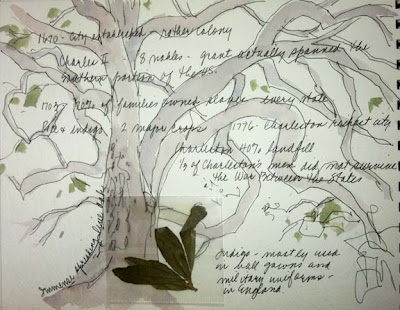 1670 - City established - rather Colony
Charles II 8 nobles - grant actually spanned the
Southern portion of the US.
families owned slaves every state
Rice & indigo - 2 major crops 1776 - Charleston richest city
Charleston 40% landfill
1/3 of Charleston's men did not survive
the War Between the States
Immense spreading live oak
Indigo - mostly used
in ball gowns and
military uniforms -
in England.